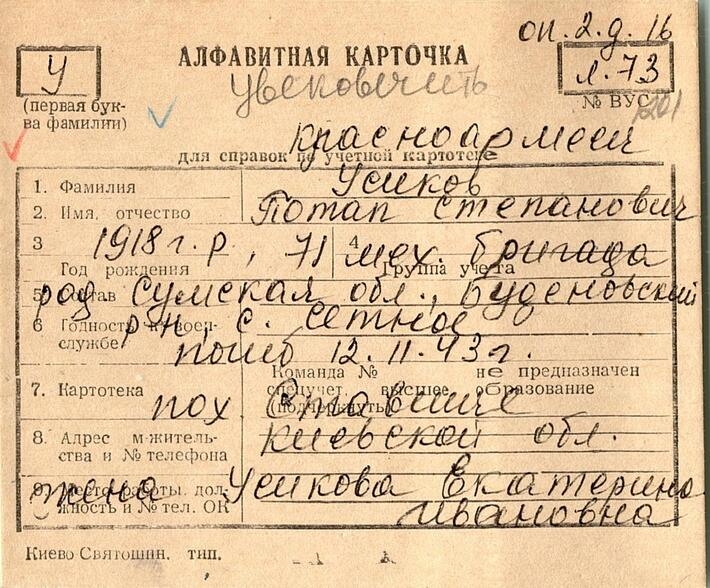 оп. 2. д. 16
У
АЛФАВИТНАЯ КАРТОЧКА
л. 73
Увековечить
(первая бук-
ва фамилии)
№ ВУС
красноармеец
для справок по учетной картотеке
1. Фамилия Усиков
2. Имя, отчество Потап Степанович
3 1918 г. р., 71 4 мех. бригада
Год рождения Группа учета
5 Состав род Сумская обл., Буденовский
6 Годность к воен- р-н, с. Сетное
службе погиб 12.11.43 г.
Команда № не предназначен
7. Картотека спецучет, высшее образование
(подчеркнуть)
пох. Ставище
8. Адрес м-житель- Киевской обл.
ства и № телефона
9. Место работы, дол- жена Усикова Екатерина
жность и № тел. ОК Ивановна
Киево Святошин. тип.